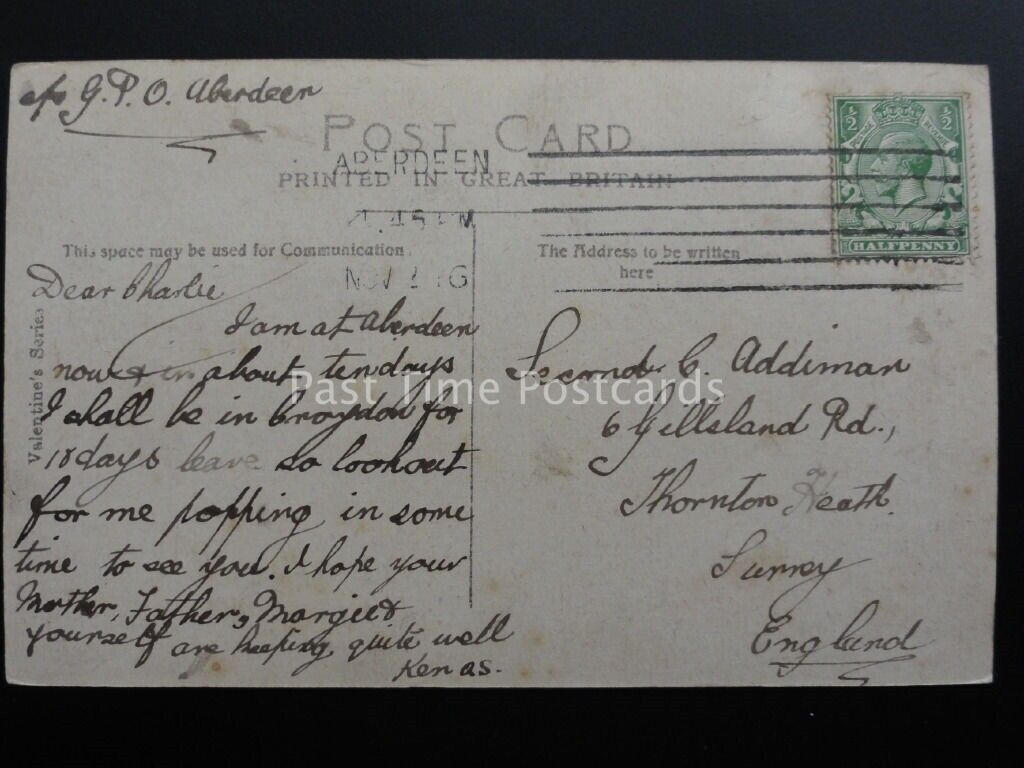 c/o G.P.O. Aberdeen
POST CARD
ABERDEEN
PRINTED IN GREAT BRITAIN
45 PM
NOV 16
½ ½
POSTAGE REVENUE
HALFPENNY
This space may be used for Communication.
The Address to be written
here
Valentine's Series
Dear Charlie
I am at Aberdeen
now & in about ten days
I shall be in Croydon for
18 days leave so lookout
for me popping in some
time to see you. I hope your
Mother, Father, Margie &
yourself are keeping quite well
C. Addiman
6 Gillsland Rd.,
Thornton Heath.
Surrey
England
Past Time Postcards